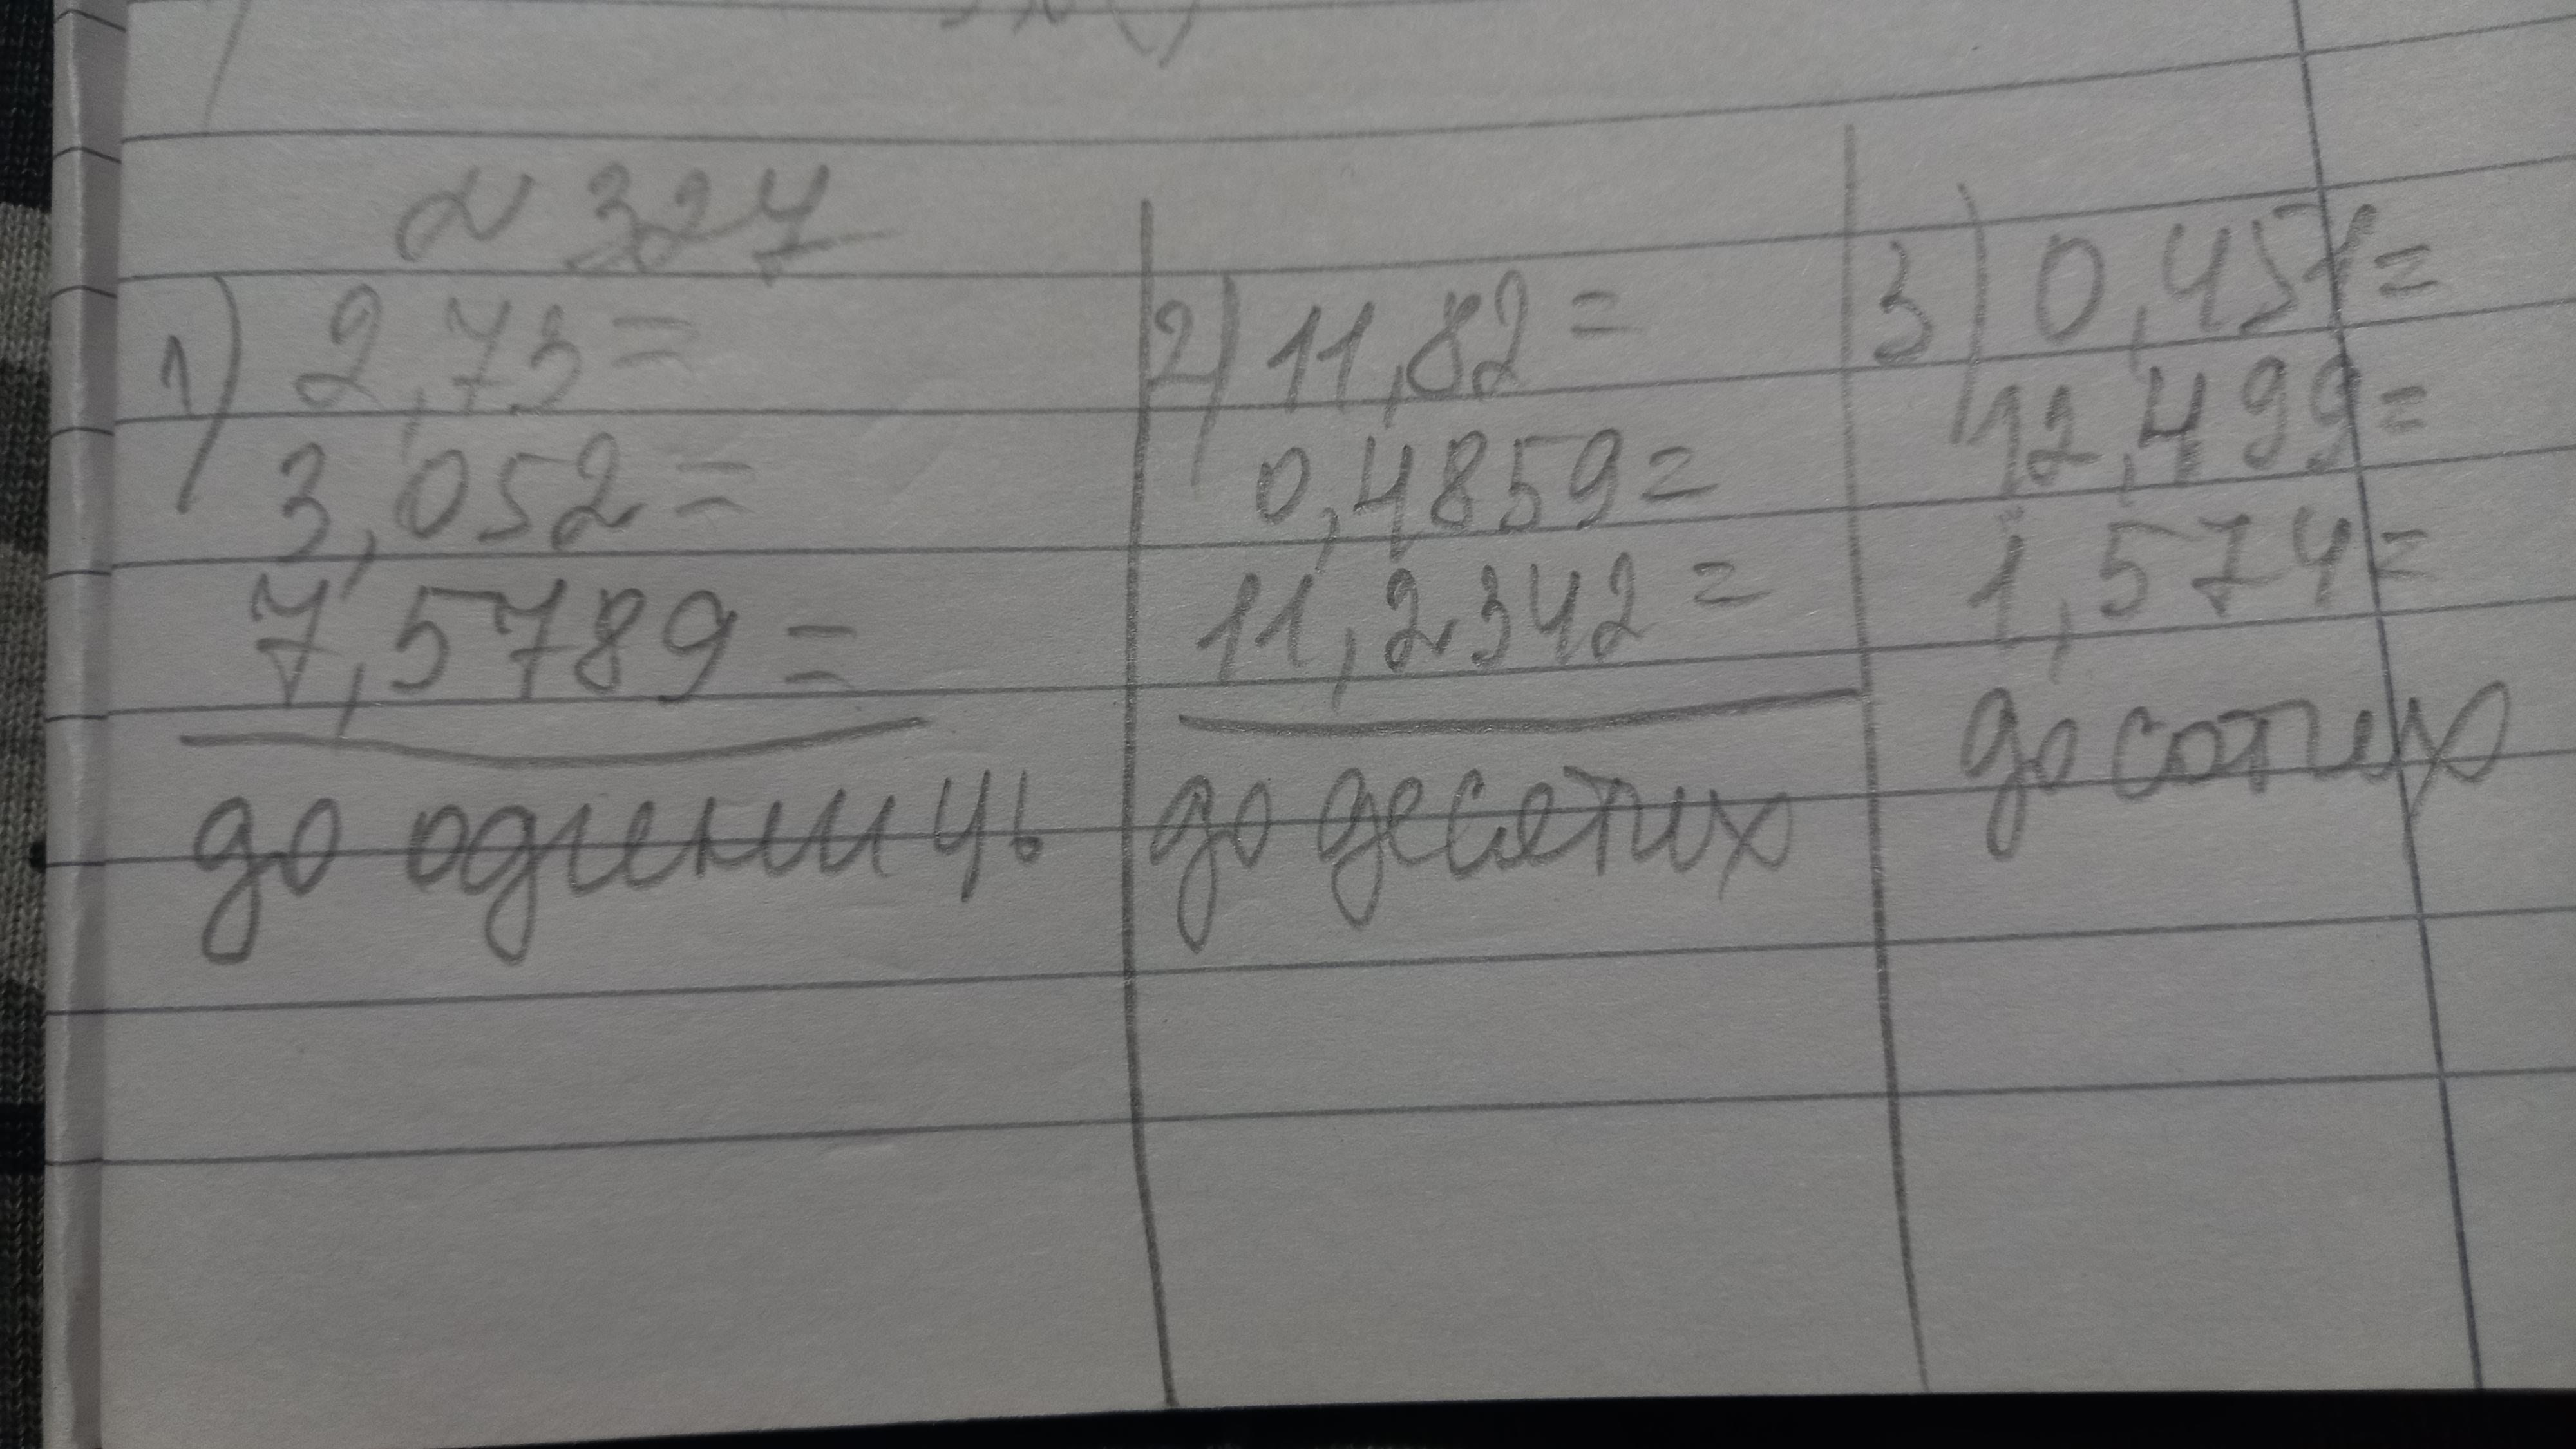 № 327
1) 2,73=
3,052=
7,5789=
до одиниць
2) 11,82=
0,4859=
11,2342=
до десетих
3) 0,457=
12,499=
1,574=
до сотих